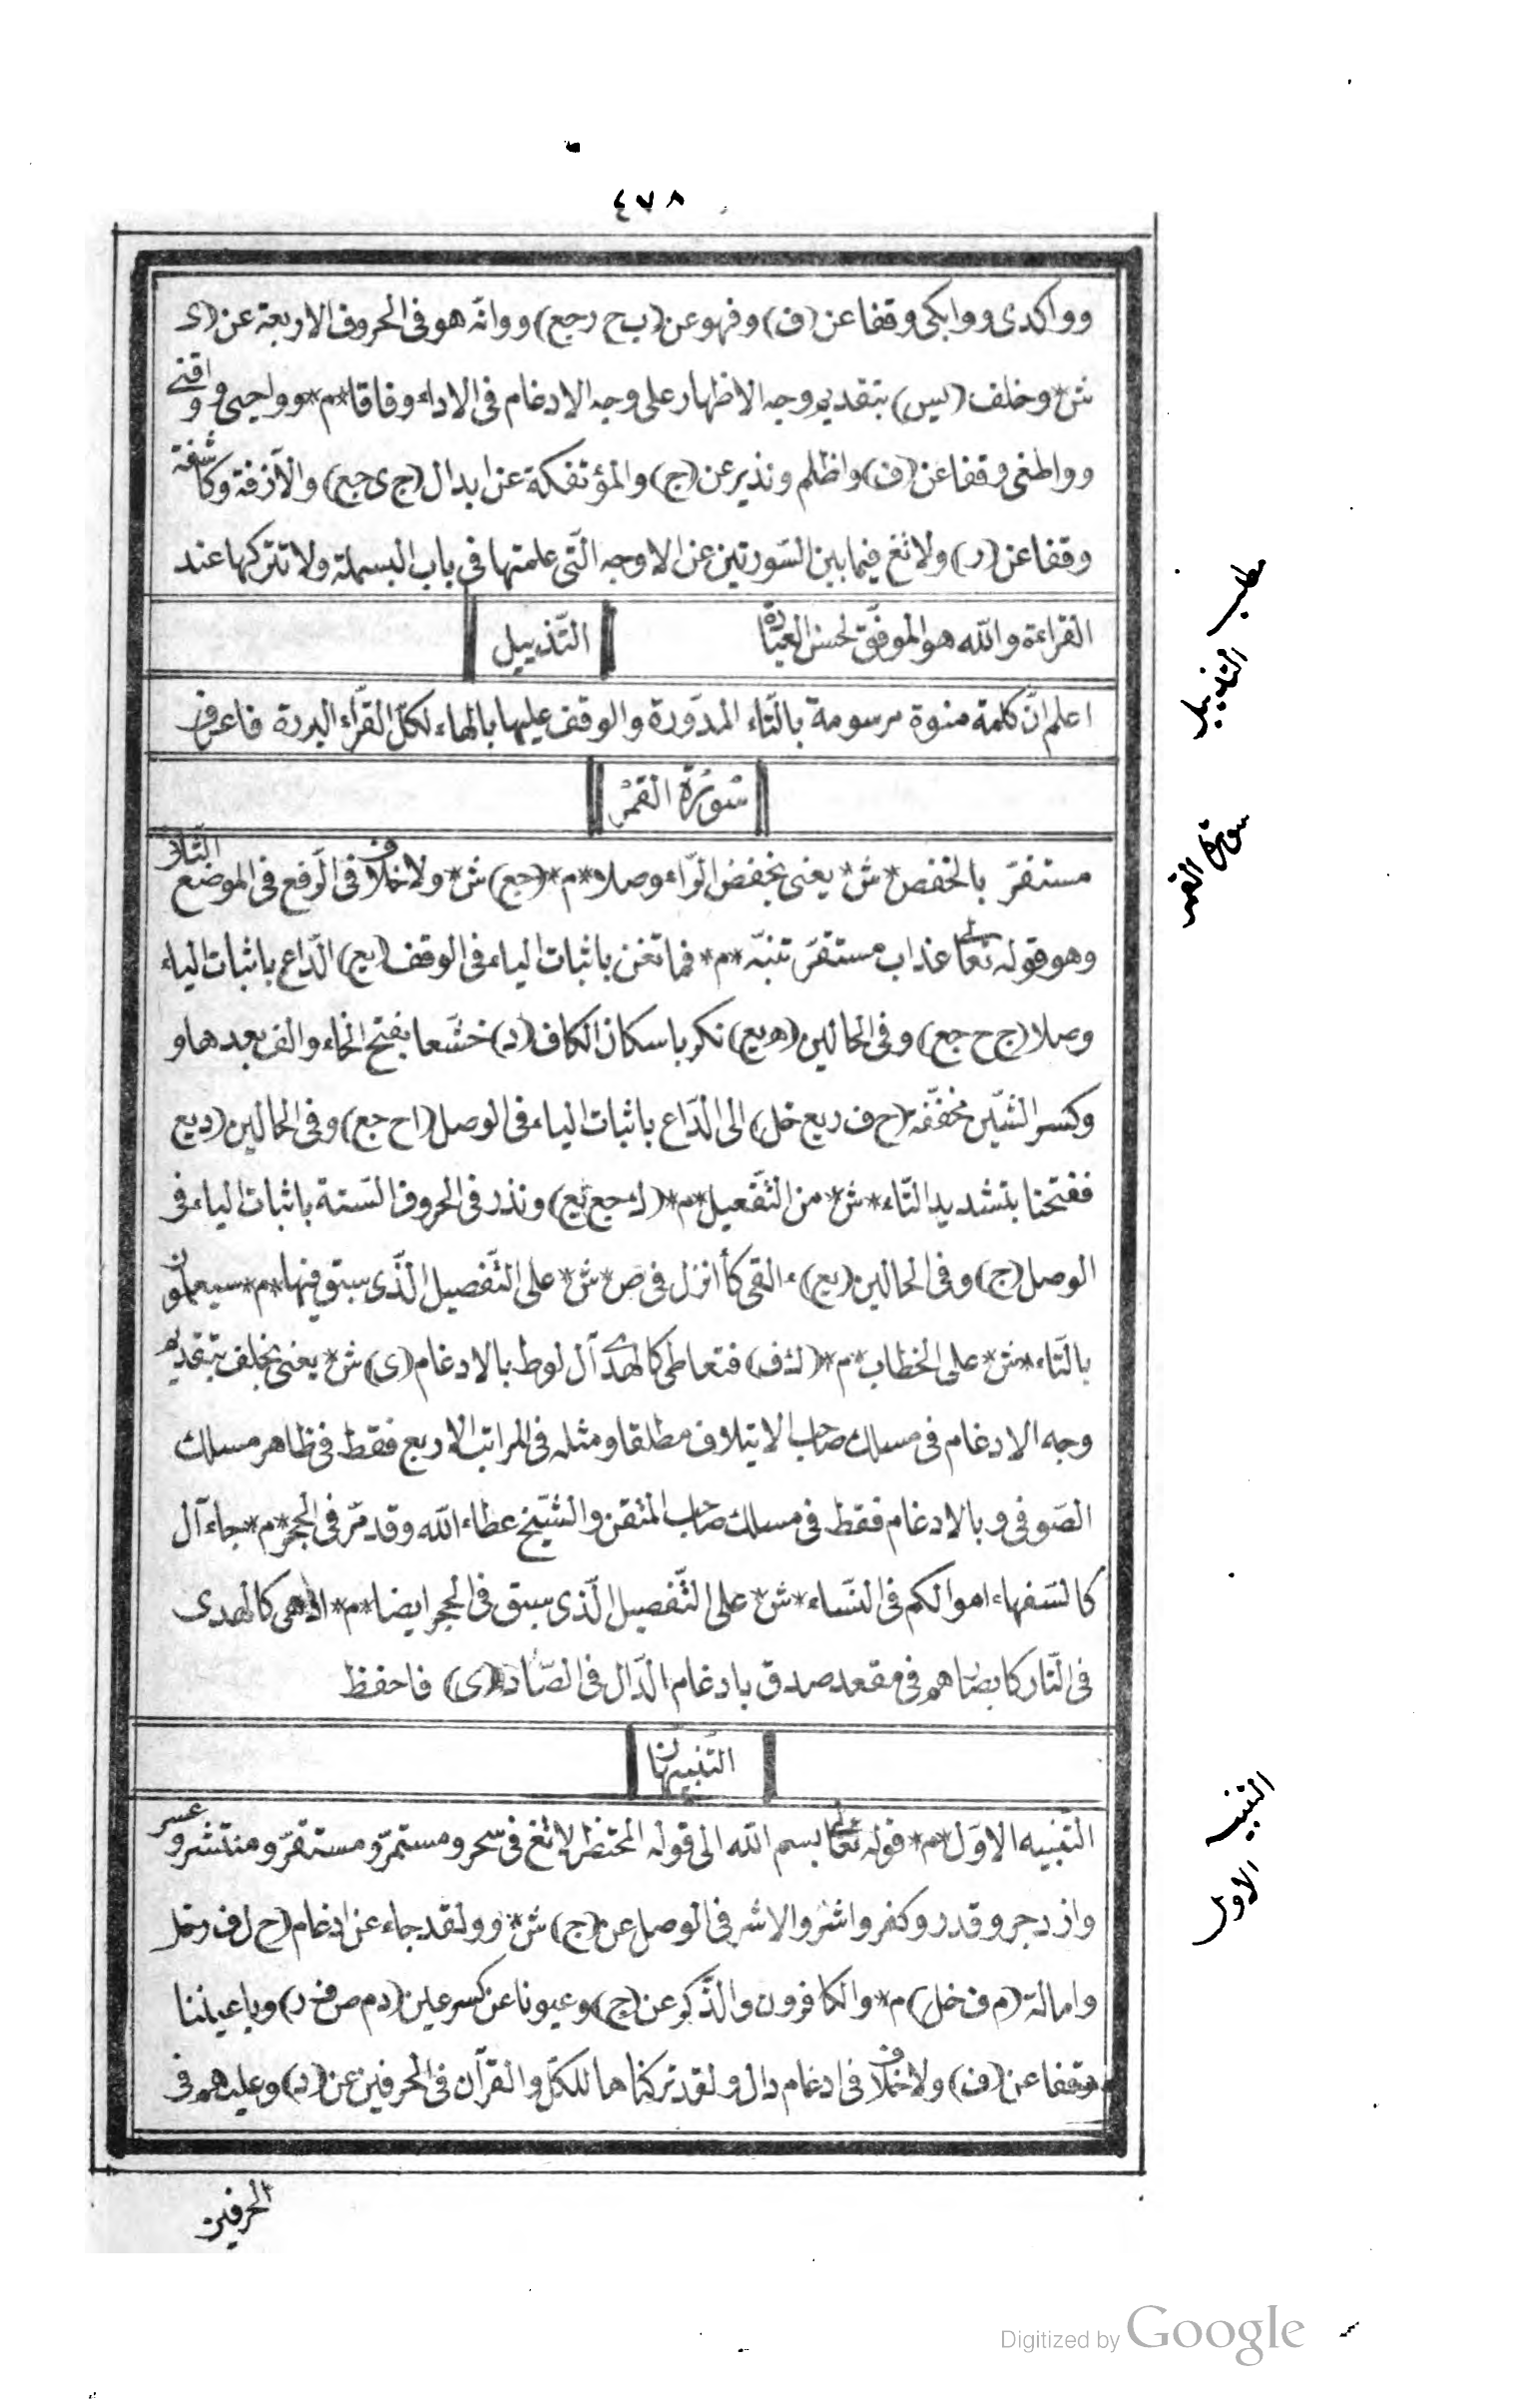 ٤٧٨
وواكدى ووابكى وقفا عن (ف) وفهو عن (ب ح ر جع) ووانّه هو فى الحروف الاربعة عن (ى
ش* وخلف (يس) بتقديم وجه الاظهار على وجه الادغام فى الاداء وفاقا *م* وواحيى و واقنى
وواطغى وقفا عن (ف) واظلم ونذير عن (ج) والمؤتفكة عن ابدال (ج ى جع) والآزفة وكاشفة
وقفا عن (ر) ولا تغ فيما بين السّورتين عن الاوجه الّتى علمتها فى باب البسملة ولا تتركها عند
القراءة والله هو الموفّق لحسن العبارة
التّذييل
اعلم انّ كلمة منوة مرسومة بالتّاء المدوّرة والوقف عليها بالهاء لكلّ القرّاء البررة فاعرف
سُورَة القمَرْ
مستقرّ بالخفض *ش* يعنى بخفض الرّاء وصلا *م* (جع) ش* ولا خلاف فى الرّفع فى الموضع الثّانى
وهو قوله تعالى عذاب مستقرّ تنبّه *م* فما تغن باثبات الياء فى الوقف (يع) الدّاع باثبات الياء
وصلا (ج ح جع) وفى الحالين (ه يع) نكر باسكان الكاف (د) خشّعا بفتح الخاء والف بعدها و
وكسر الشّين مخفّفة (ح ف ر يع خل) الى الدّاع باثبات الياء فى الوصل (ا ح جع) وفى الحالين (د يع
ففتحنا بتشديد التّاء *ش* من التّفعيل *م* (ك جع يع) ونذر فى الحروف السّتة باثبات الياء فى
الوصل (ج) وفى الحالين (يع) ءالقى كأانزل فى ص *ش* على التّفصيل الّذى سبق فيها *م* سيعلمون
بالتّاء *ش* على الخطاب *م* (ك ف) فتعاطى كالهدى آل لوط بالادغام (ى) ش* يعنى بخلف بتقديم
وجه الادغام فى مسلك صاحب الايتلاف مطلقا ومثله فى المراتب الاربع فقط فى ظاهر مسلك
الصّوفى وبالادغام فقط فى مسلك صاحب المتقن والشّيخ عطاء الله وقد مرّ فى الحجر *م* جاء آل
كالسّفهاء اموالكم فى النّساء *ش* على التّفصيل الّذى سبق فى الحجر ايضا *م* ادهى كالهدى
فى النّار كابصارهم فى مقعد صدق بادغام الدّال فى الصّاد (ى) فاحفظ
التّنبيهان
التّنبيه الاوّل *م* قوله تعالى بسم الله الى قوله المحتظر لا تغ فى سحر ومستمرّ ومستقرّ ومنتشر وعسر
وازدجر وقدر وكفر واشر والاشر فى الوصل عن (ج) ش* وولقد جاء عن ادغام (ح ل ف ر خل
وامالة (م ف خل) م* والكافرون والذّكر عن (ج) وعيونا عن كسر عين (د م ص ف ر) وباعيننا
وقفا عن (ف) ولا خلاف فى ادغام دال ولقد تركناها للكلّ والقرآن فى الحرفين عن (د) وعليهم فى
الحرفين
مطلب التذييل
سورة القمر
التنبيه الاول
Digitized by Google